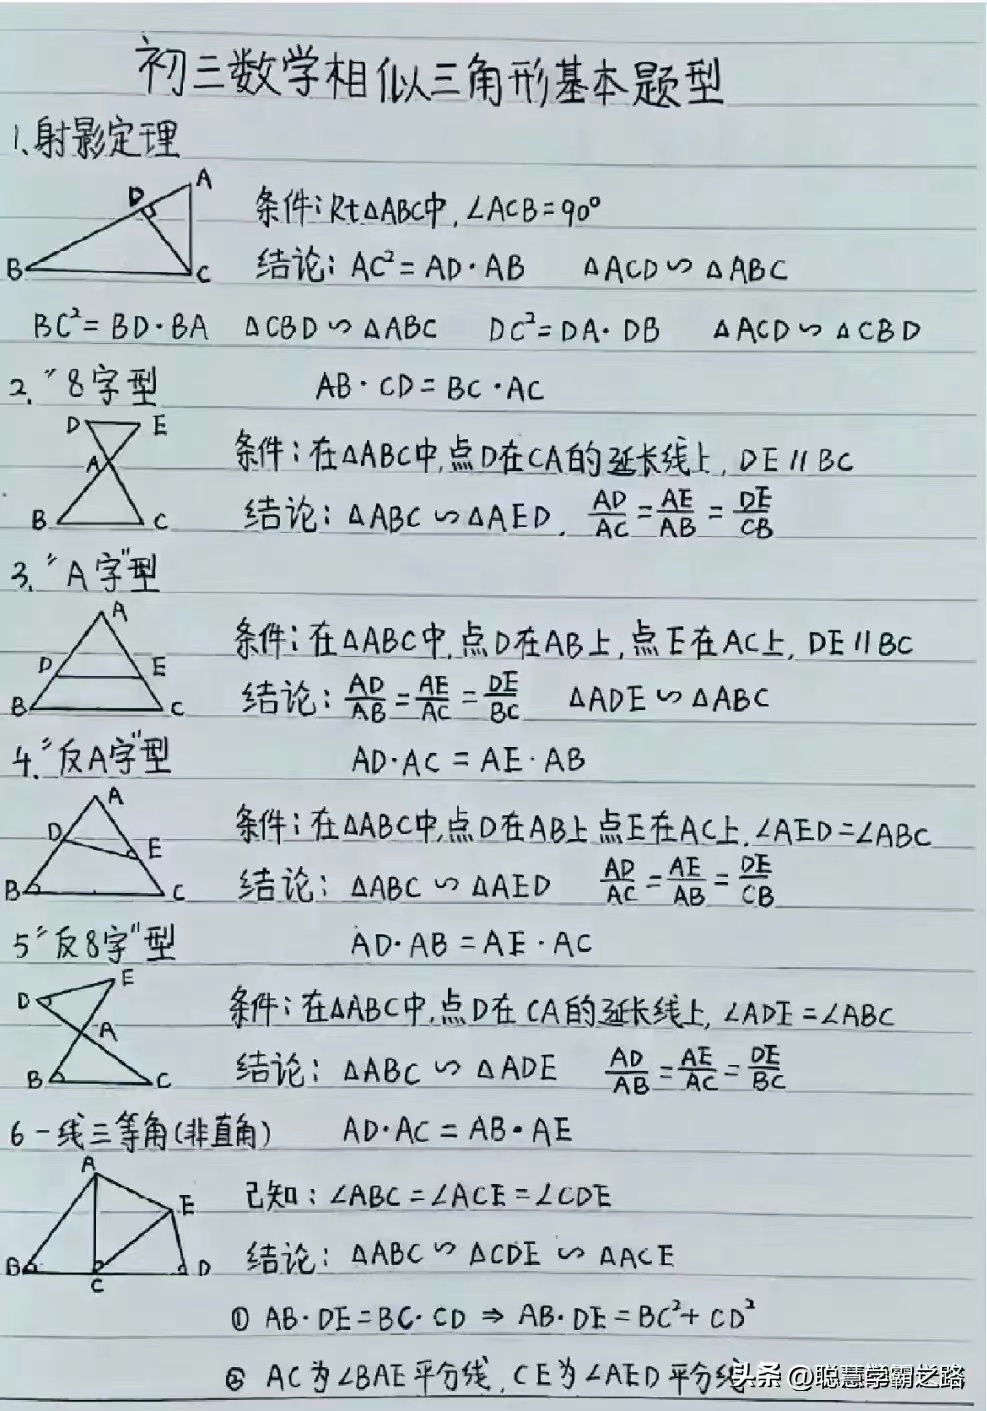 初三数学相似三角形基本题型
1、射影定理
A
D
B
C
条件:Rt△ABC中,∠ACB=90°
结论: AC²=AD·AB △ACD∽△ABC
BC²=BD·BA △CBD∽△ABC DC²=DA·DB △ACD∽△CBD
2.“8字型 AB·CD=BC·AC
D E
A
B C
条件:在△ABC中,点D在CA的延长线上,DE∥BC
结论:△ABC∽△AED, AD/AC=AE/AB=DE/CB
3.“A字”型
A
D E
B C
条件:在△ABC中,点D在AB上,点E在AC上,DE∥BC
结论:AD/AB=AE/AC=DE/BC △ADE∽△ABC
4.“反A字”型 AD·AC=AE·AB
A
D
E
B C
条件:在△ABC中,点D在AB上点E在AC上,∠AED=∠ABC
结论:△ABC∽△AED AD/AC=AE/AB=DE/CB
5“反8字”型 AD·AB=AE·AC
E
D
A
B C
条件:在△ABC中,点D在CA的延长线上,∠ADE=∠ABC
结论:△ABC∽△ADE AD/AB=AE/AC=DE/BC
6一线三等角(非直角) AD·AC=AB·AE
A
E
B C D
已知:∠ABC=∠ACE=∠CDE
结论:△ABC∽△CDE∽△ACE
① AB·DE=BC·CD⇒AB·DE=BC²+CD²
② AC为∠BAE平分线,CE为∠AED平分线
头条 @聪慧学霸之路